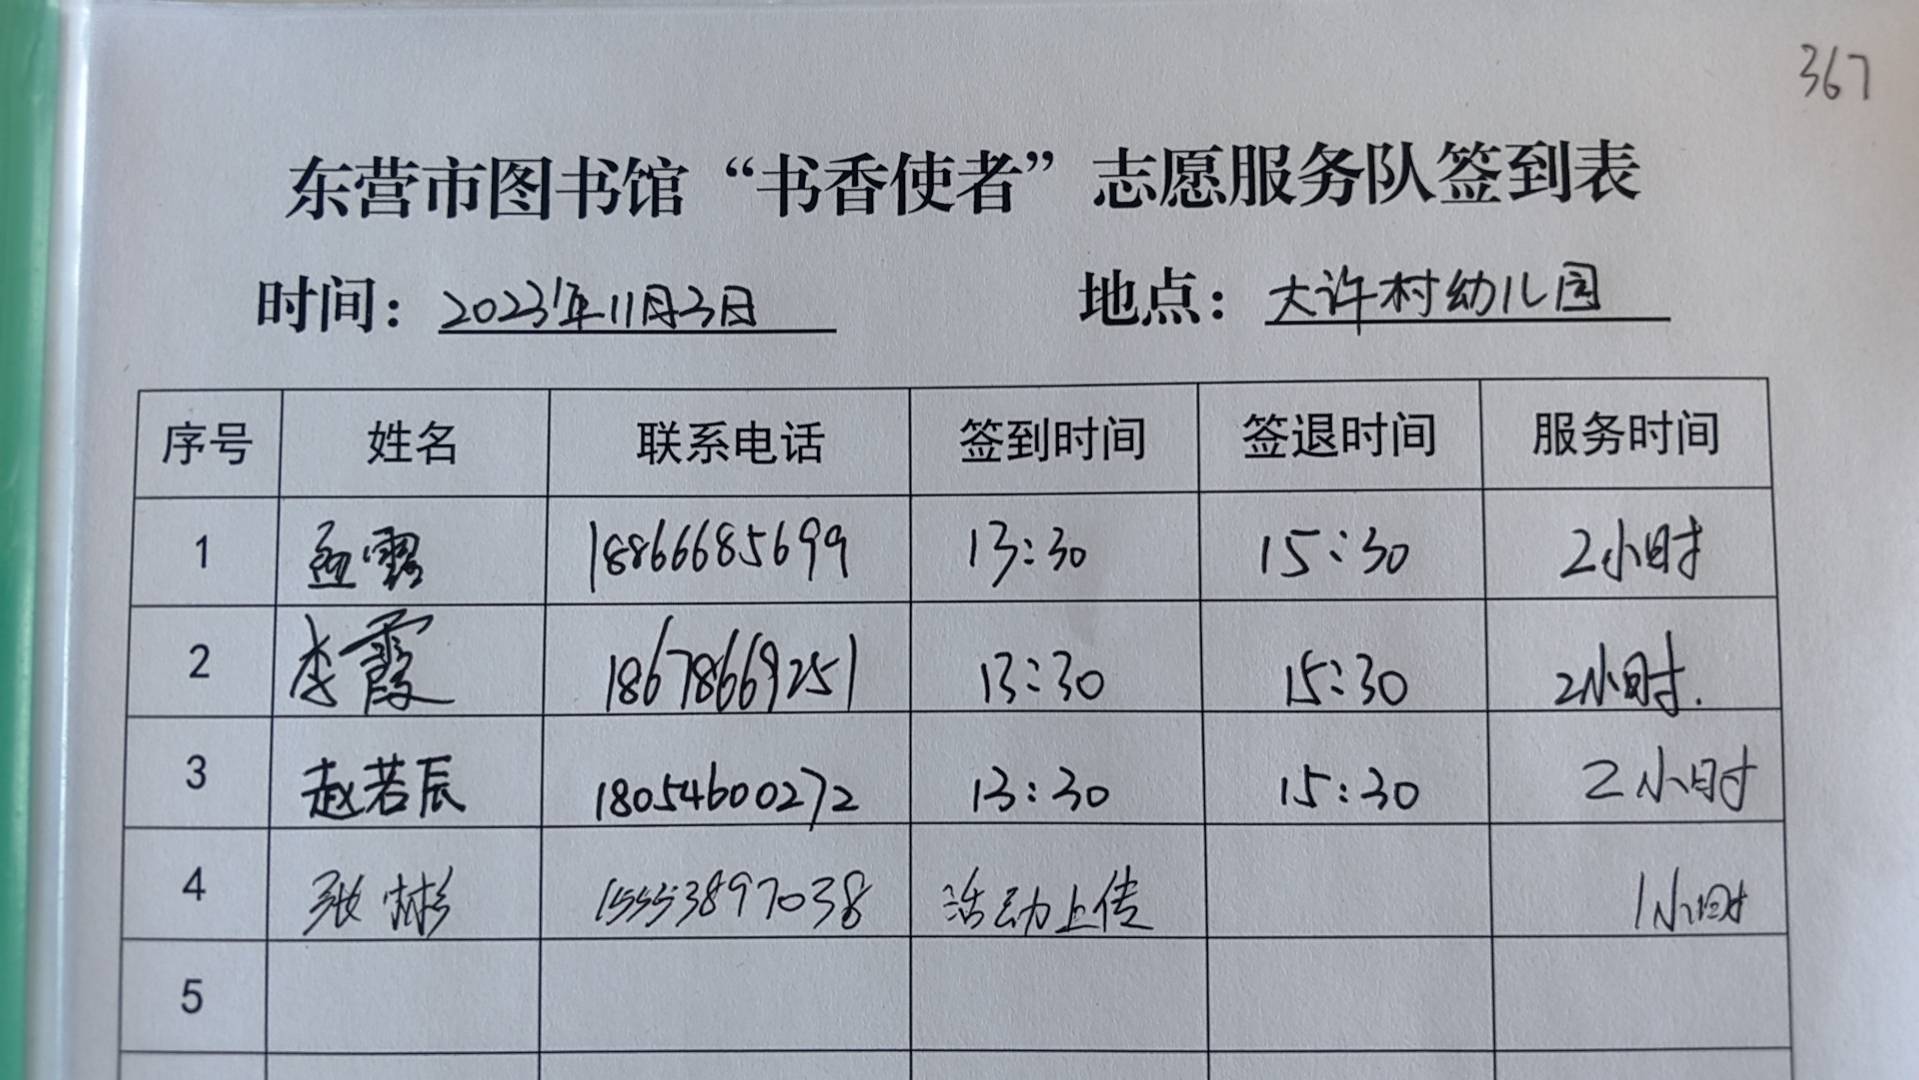 367
东营市图书馆“书香使者”志愿服务队签到表
时间：2023年11月3日 地点：大许村幼儿园
序号 姓名 联系电话 签到时间 签退时间 服务时间
1 孟露 18866685699 13:30 15:30 2小时
2 李霞 18678669251 13:30 15:30 2小时.
3 赵若辰 18054600272 13:30 15:30 2小时
4 张彬 15553897038 活动上传 1小时
5